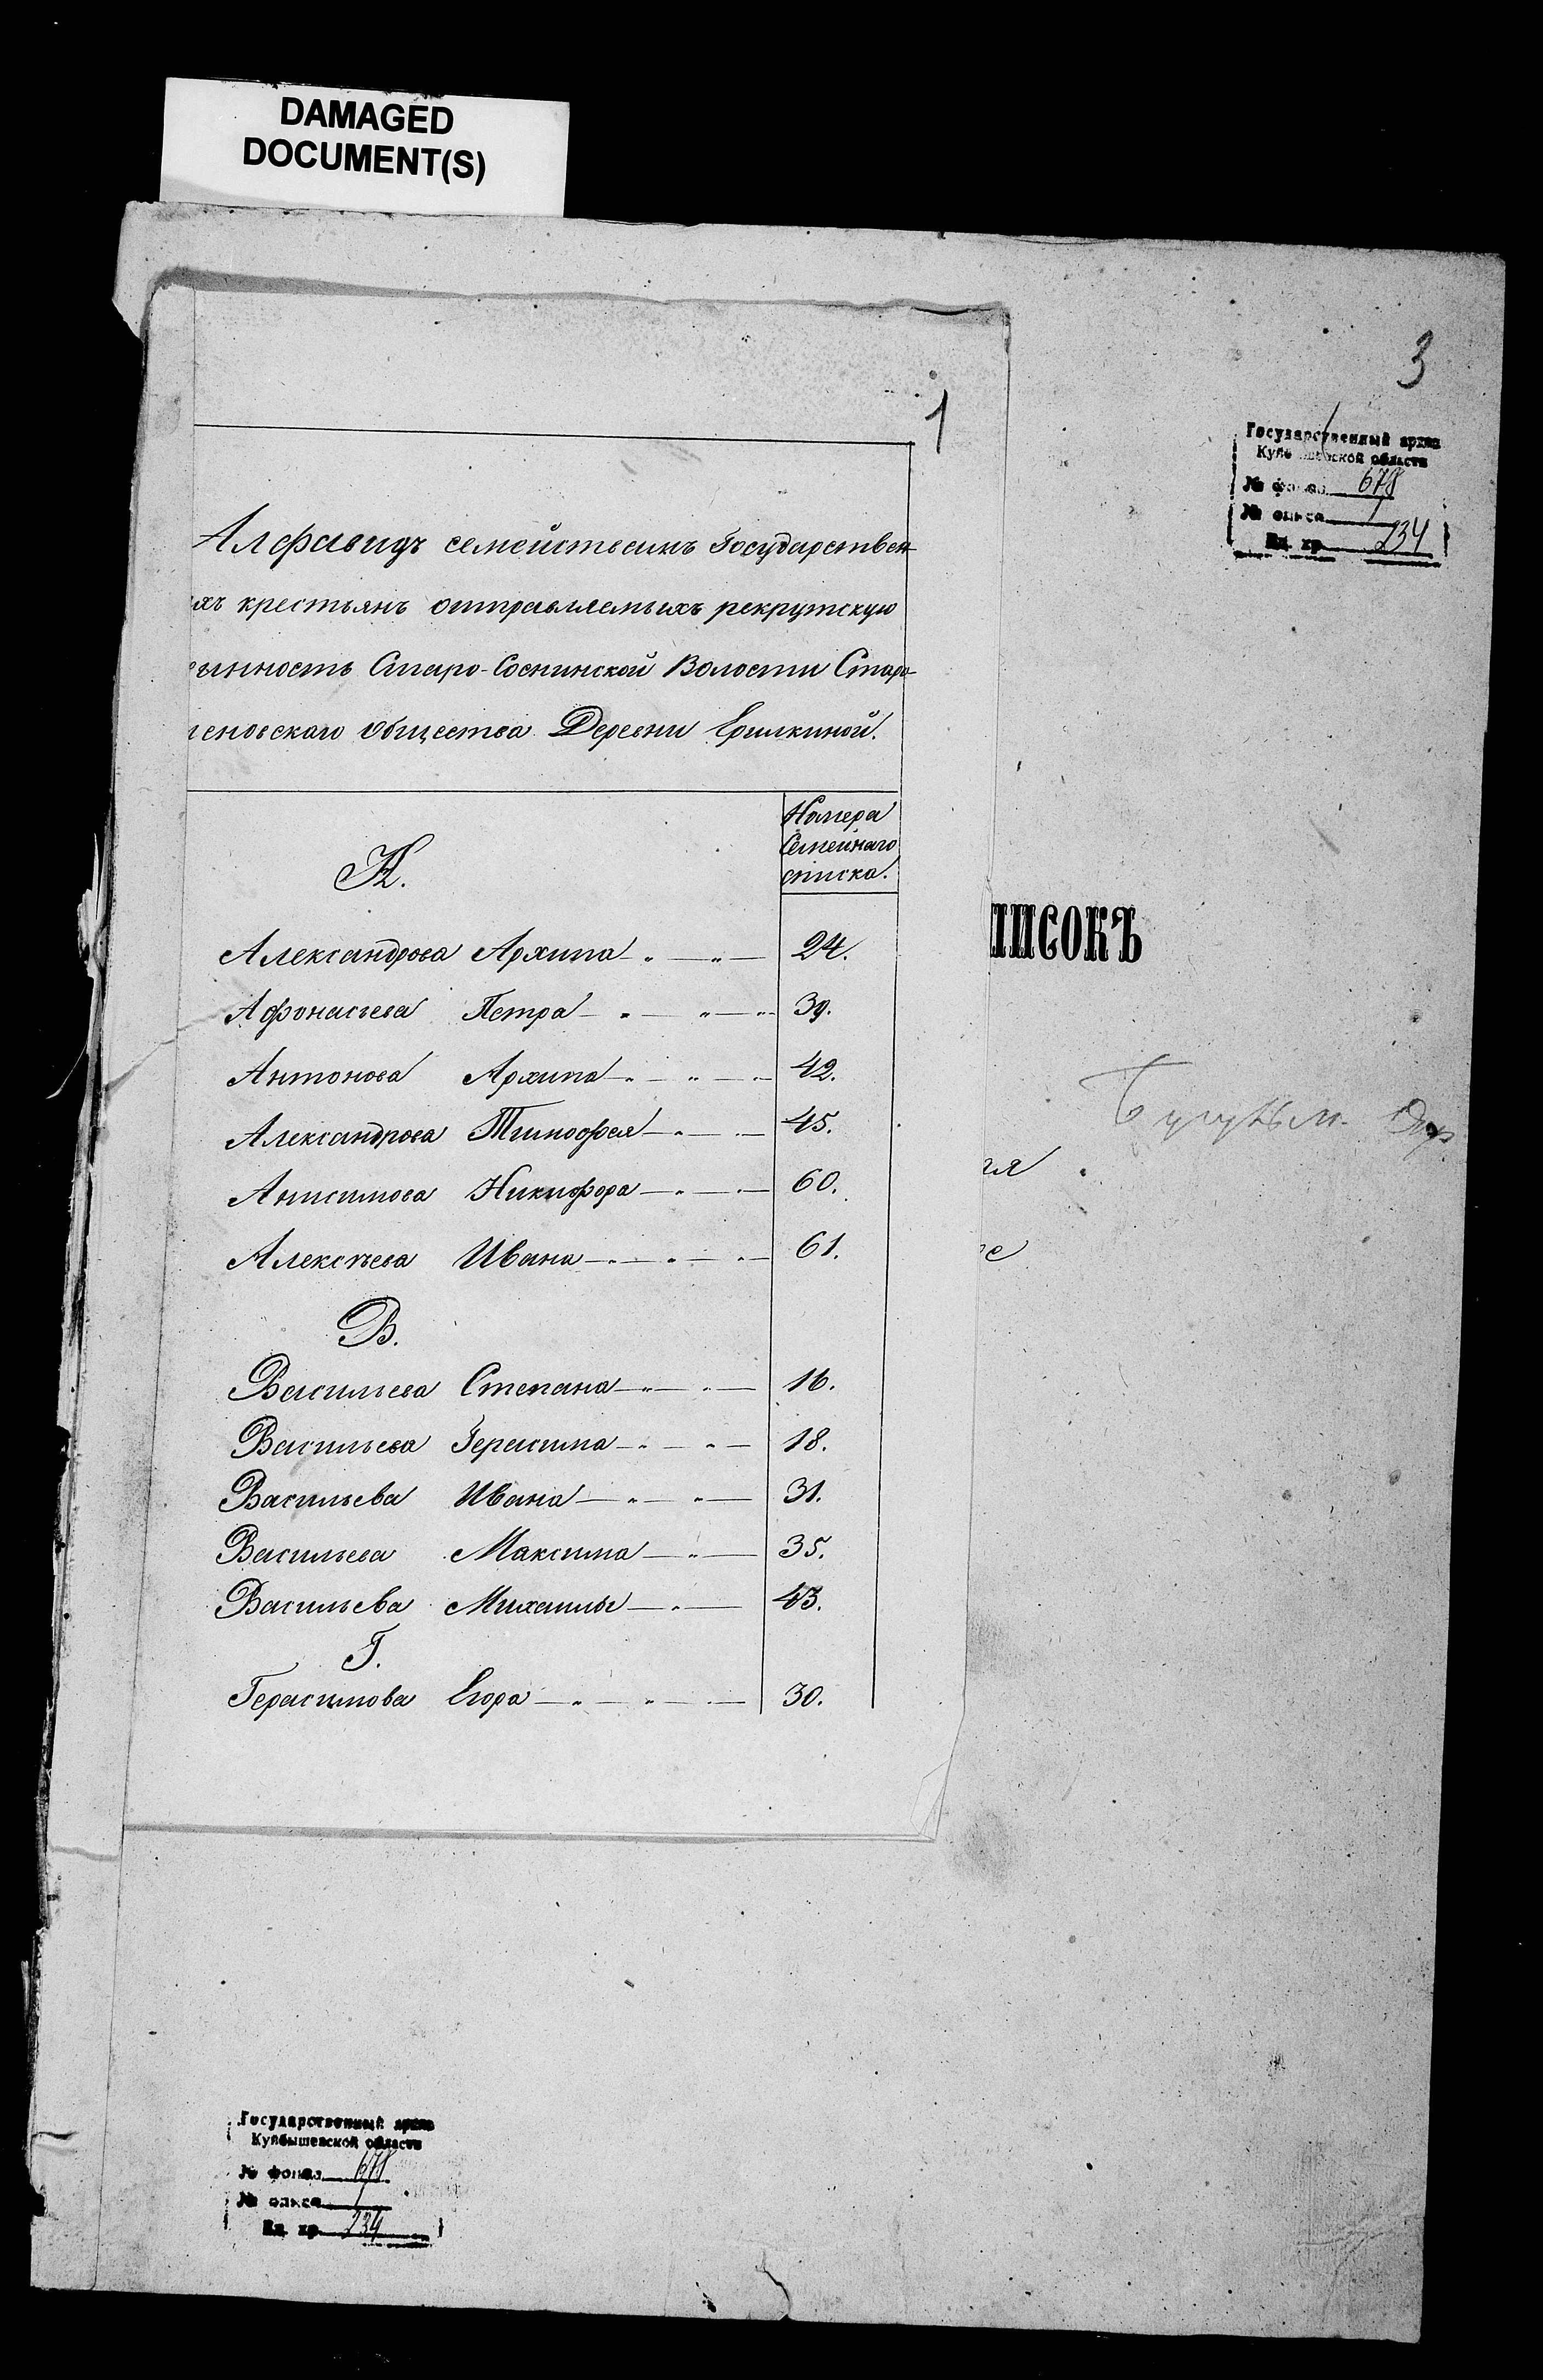 DAMAGED
DOCUMENT(S)
3
1
Государственный архив
Куйбышевской области
№ фонда 678
№ описи 1
Ед. хр. 234
Алфавидъ семействамъ Государствен-
хъ крестьянъ отправляемыхъ рекрутскую
инность Старо-Соснинской Волости Старо-
еновскаго общества Деревни Ерилкиной.
Номера
Семейнаго
списка.
А.
Александрова Архипа 24.
Афонасьева Петра 39.
Антонова Архипа 42.
Александрова Тимофея 45.
Анисимова Никифора 60.
Алексѣева Ивана 61.
В.
Васильева Степана 16.
Васильева Герасима 18.
Васильева Ивана 31.
Васильева Максима 35.
Васильева Михаилы 43.
Г.
Герасимова Егора 30.
ПИСОКЪ
Бугульм.
ия
е
Государственный архив
Куйбышевской области
№ фонда 678
№ описи 1
Ед. хр. 234